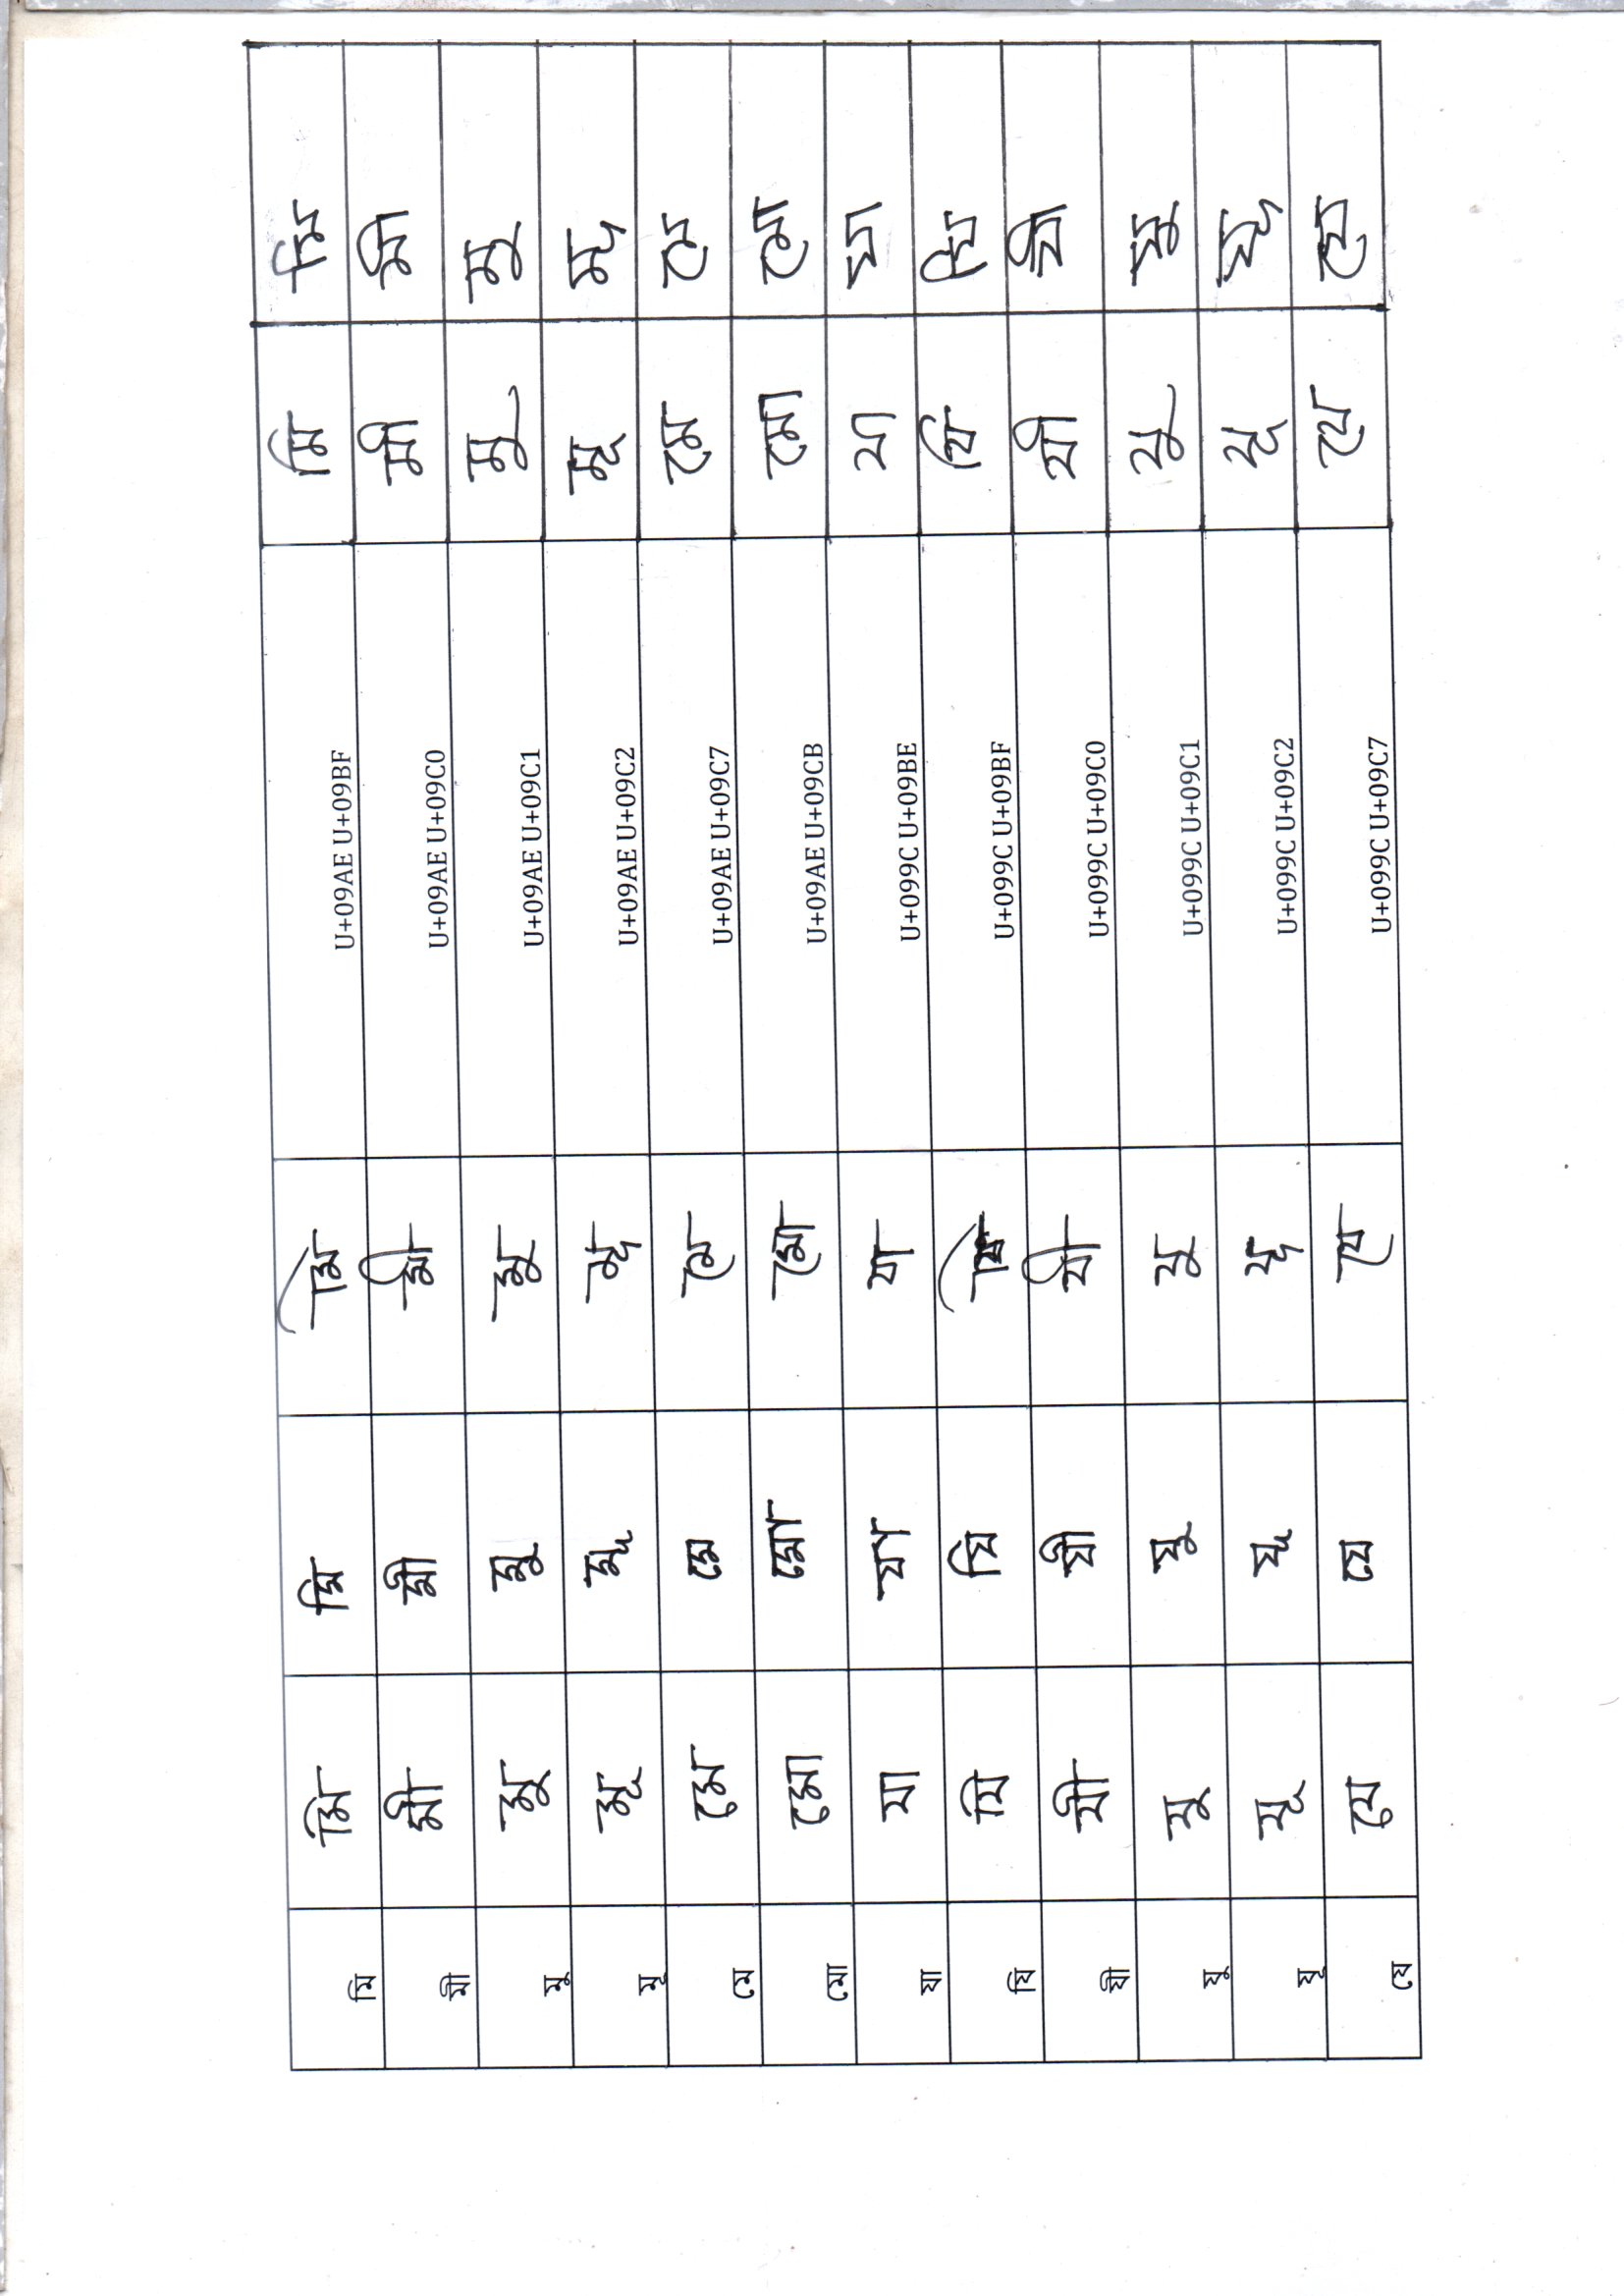 মি মি মি মি U+09AE U+09BF মি মি
মী মী মী মী U+09AE U+09C0 মী মী
মু মু মু মু U+09AE U+09C1 মু মু
মূ মূ মূ মূ U+09AE U+09C2 মূ মূ
মে মে মে মে U+09AE U+09C7 মে মে
মো মো মো মো U+09AE U+09CB মো মো
যা যা যা যা U+099C U+09BE যা যা
যি যি যি যি U+099C U+09BF যি যি
যী যী যী যী U+099C U+09C0 যী যী
যু যু যু যু U+099C U+09C1 যু যু
যূ যূ যূ যূ U+099C U+09C2 যূ যূ
যে যে যে যে U+099C U+09C7 যে যে